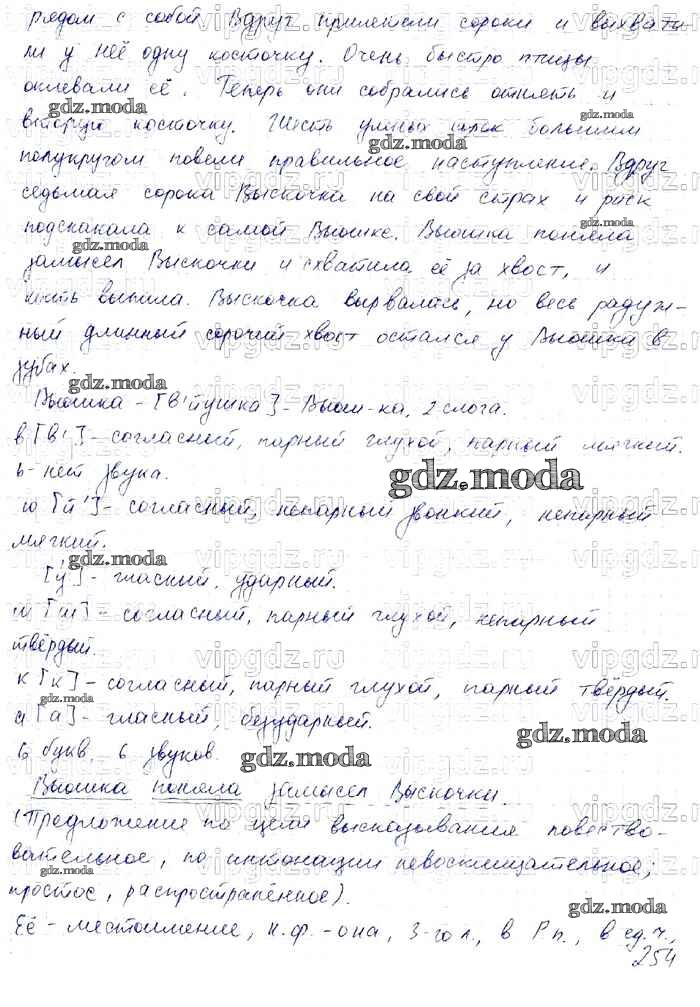 рядом с собой Вдруг прилетели сороки и выхвати-
ли у неё одну косточку. Очень быстро птицы
склевали её. Теперь они собрались отнять и
вторую косточку. Шесть умных сорок большим
полукругом повели правильное наступление. Вдруг
седьмая сорока Выскочка на свой страх и риск
подскакала к самой Вьюшке. Вьюшка поняла
замысел Выскочки и схватила её за хвост, и
кость выпила. Выскочка вырвалась, но весь радуж-
ный длинный сорочий хвост остался у Вьюшки в
зубах.
Вьюшка - [в'йушка] - Вьюш-ка, 2 слога.
в [в'] - согласный, парный глухой, парный мягкий.
ь - нет звука.
ю [й'] - согласный, непарный звонкий, непарный
мягкий.
[у́] - гласный, ударный.
ш [ш] - согласный, парный глухой, непарный
твёрдый.
к [к] - согласный, парный глухой, парный твёрдый.
а [а] - гласный, безударный.
6 букв, 6 звуков.
Вьюшка поняла замысел Выскочки.
(Предложение по цели высказывания повество-
вательное, по интонации невосклицательное,
простое, распространённое).
Её - местоимение, н.ф. - она, 3-го л., в Р.п., в ед.ч.,
254
gdz.moda
vipgdz.ru